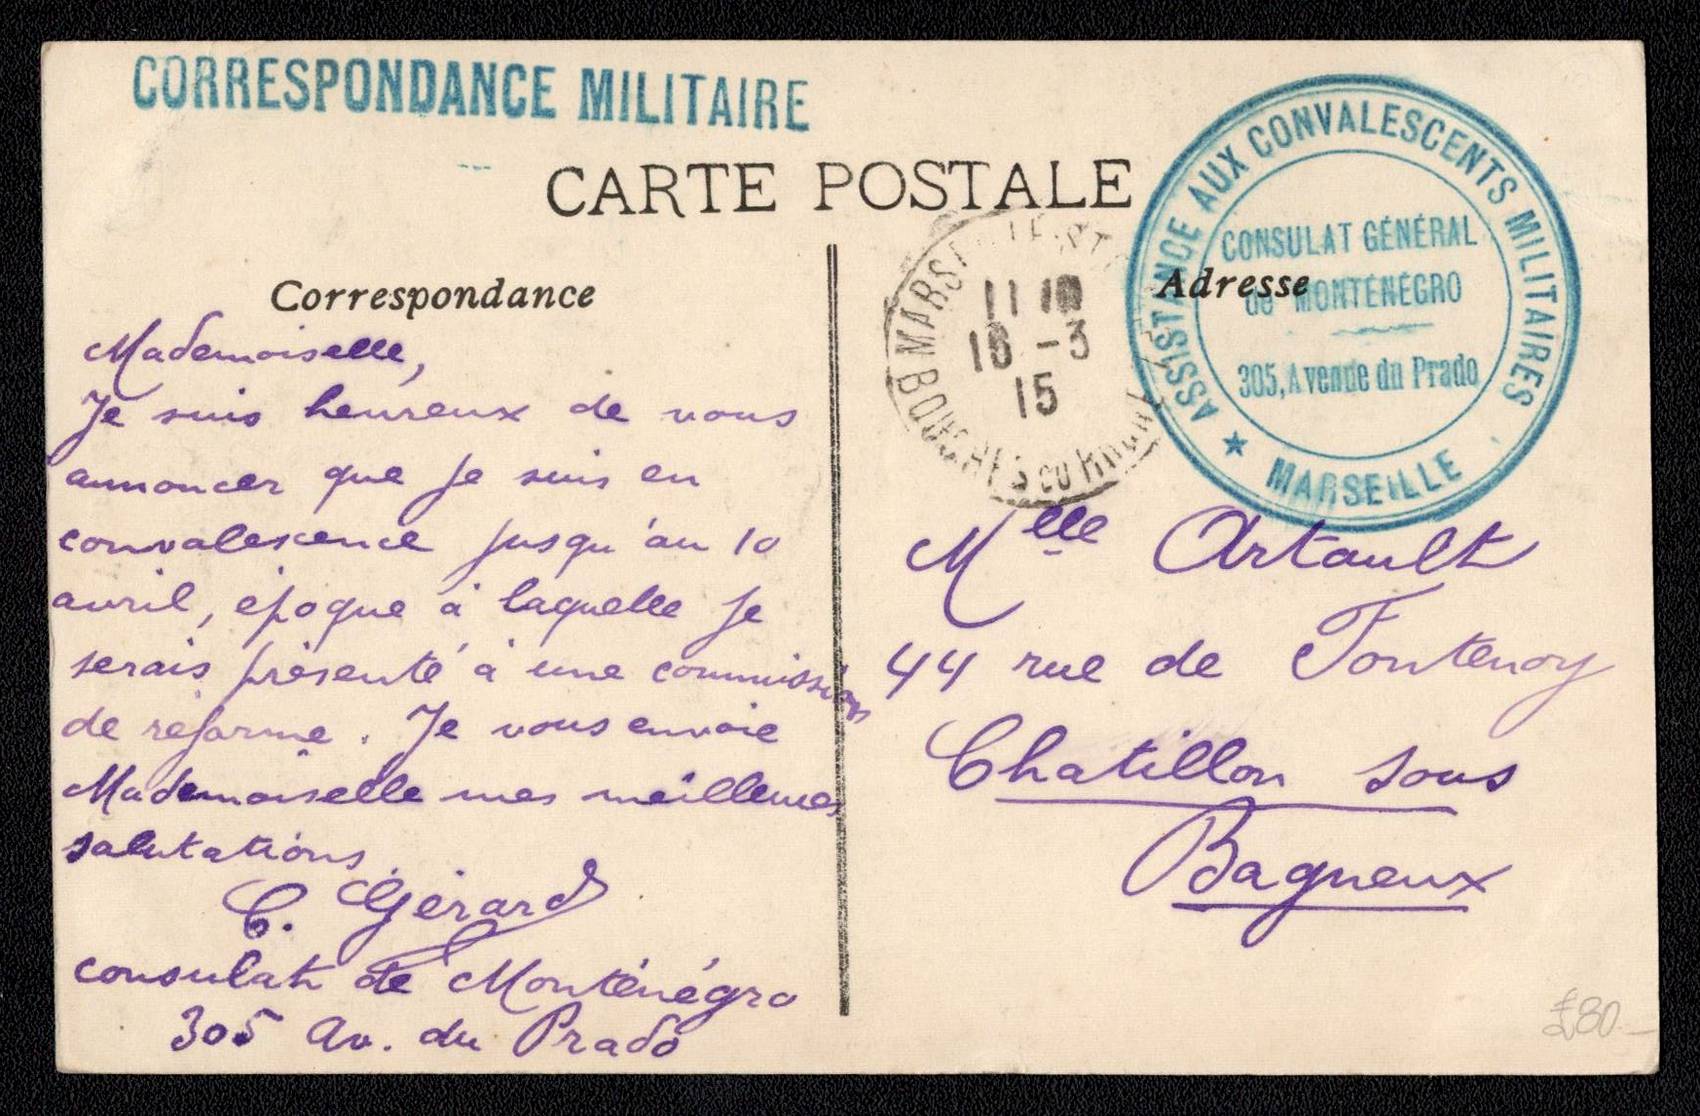 CORRESPONDANCE MILITAIRE
CARTE POSTALE
Correspondance
Mademoiselle,
Je suis heureux de vous
annoncer que je suis en
convalescence jusqu'au 10
avril, époque à laquelle je
serais présenté à une commission
de réforme. Je vous envoie
Mademoiselle mes meilleures
salutations
C. Gérard
consulat de Monténégro
305 av. du Prado
11 10
16 -3
15
BOUCHES DU RHONE
Adresse
ASSISTANCE AUX CONVALESCENTS MILITAIRES
CONSULAT GÉNÉRAL
de MONTÉNÉGRO
305, Avenue du Prado
★ MARSEILLE
Mlle Artault
44 rue de Fontenoy
Chatillon sous
Bagneux
£80.-